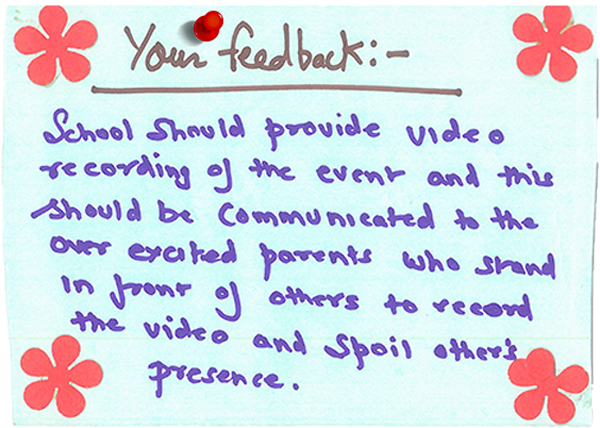 Your feedback:-
School should provide video
recording of the event and this
should be communicated to the
over excited parents who stand
in front of others to record
the video and spoil other's
presence.